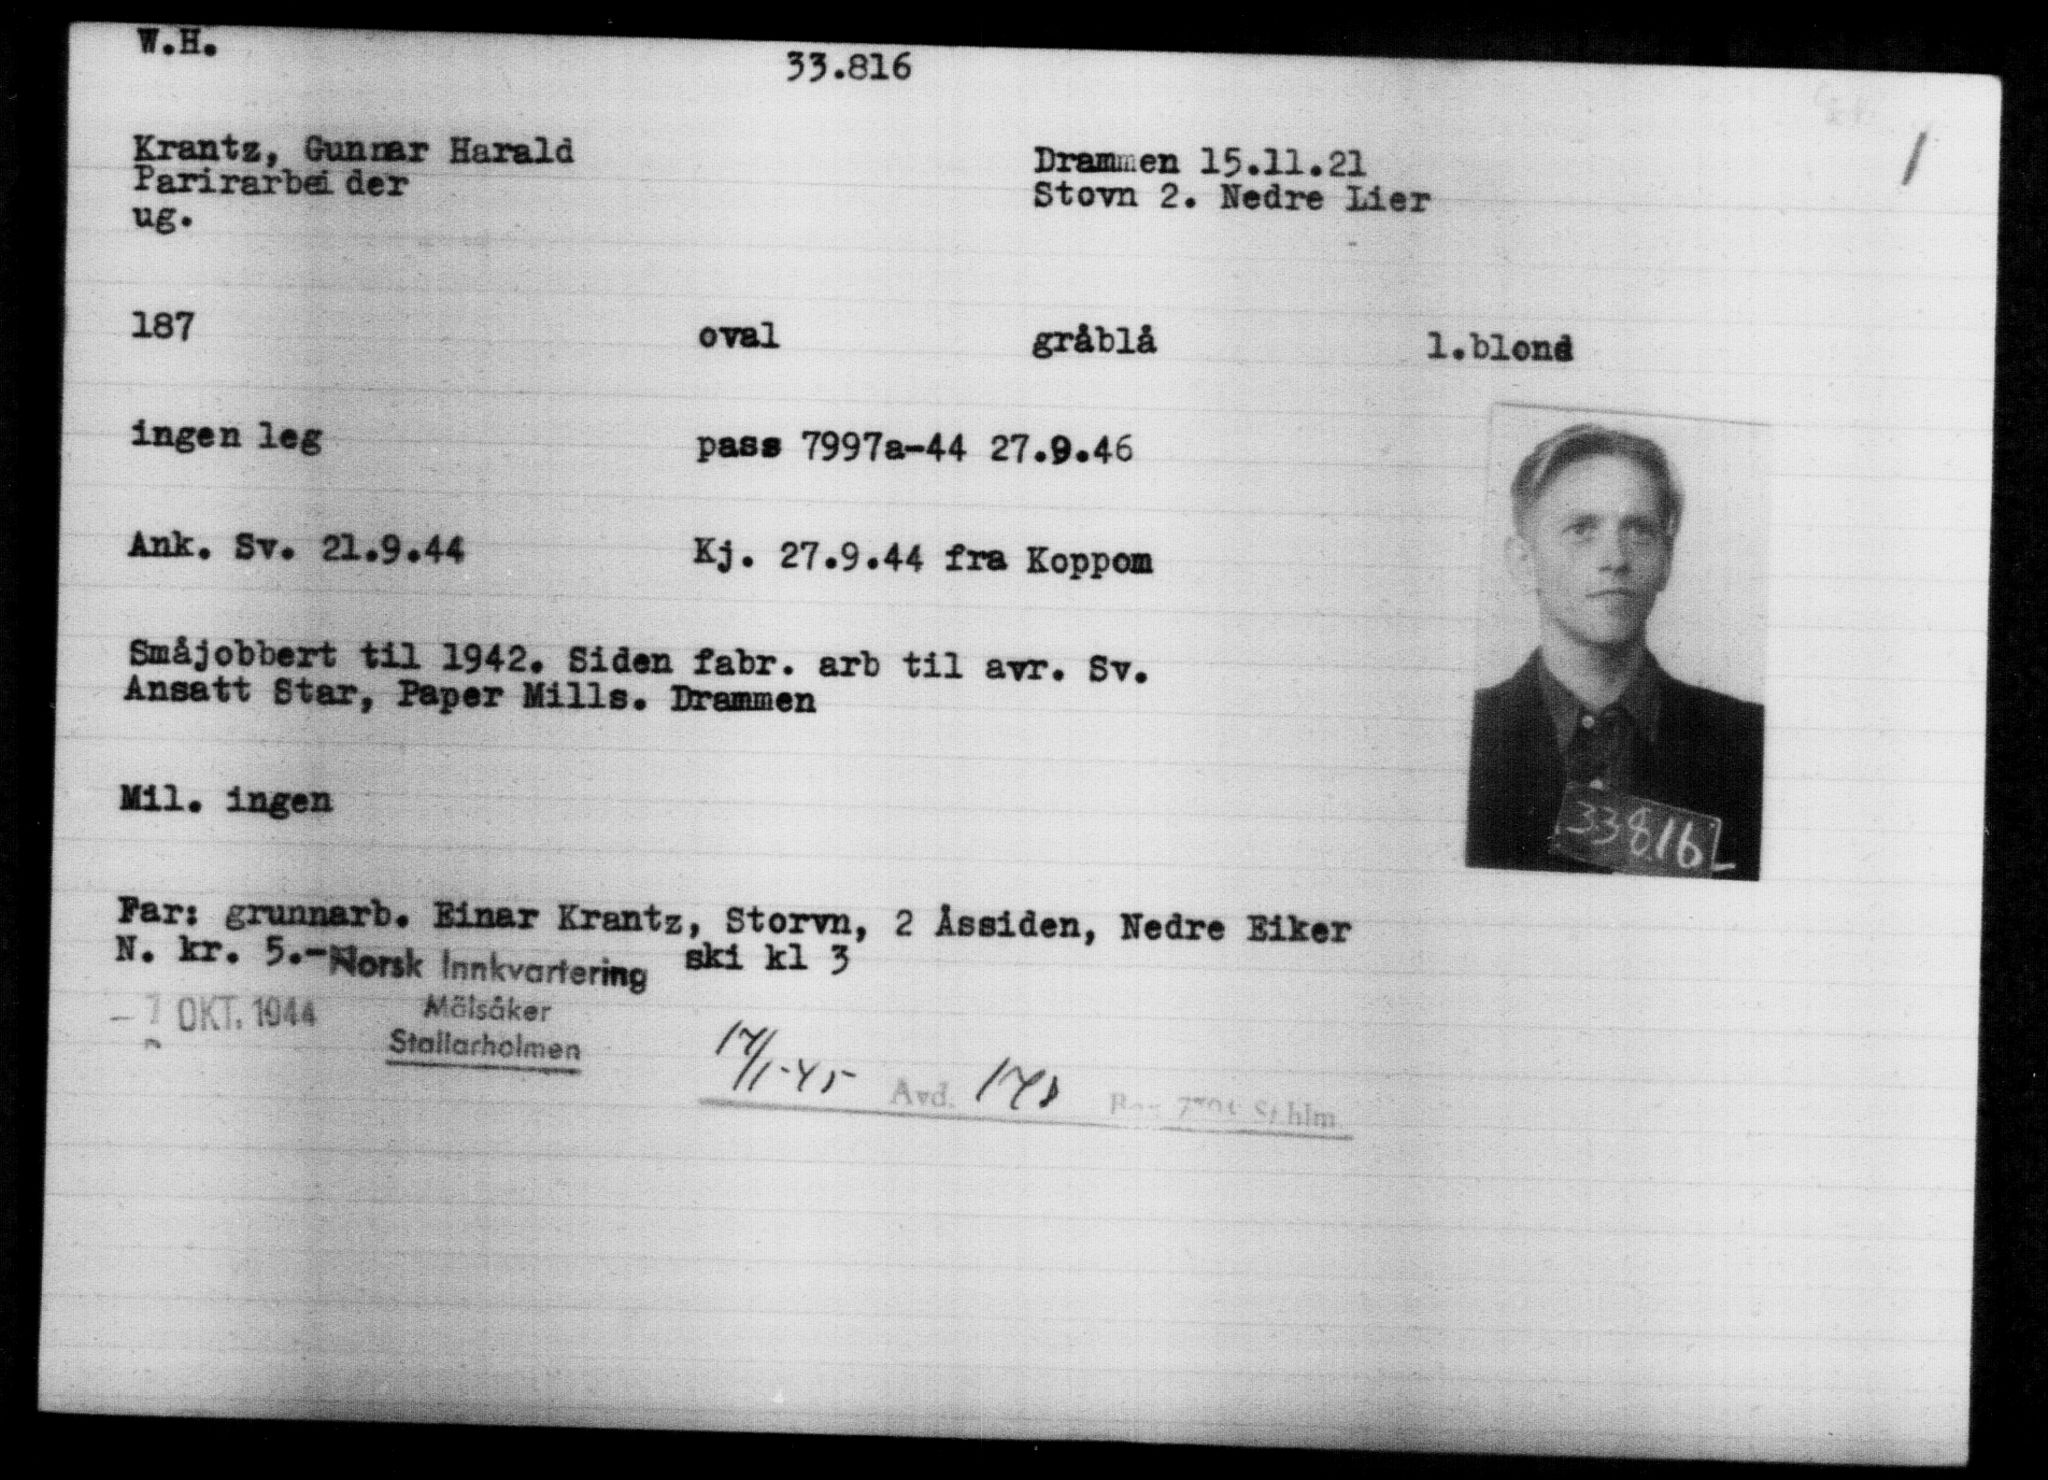 W.H.
33.816
Krantz, Gunnar Harald
Drammen 15.11.21
Parirarbeider
Stovn 2. Nedre Lier
ug.
187 oval gråblå l.blond
ingen leg pass 7997a-44 27.9.46
Ank. Sv. 21.9.44 Kj. 27.9.44 fra Koppom
Småjobbert til 1942. Siden fabr. arb til avr. Sv.
Ansatt Star, Paper Mills. Drammen
Mil. ingen
33816
Far: grunnarb. Einar Krantz, Storvn, 2 Åssiden, Nedre Eiker
N. kr. 5.- ski kl 3
Norsk Innkvartering
Mälsåker
Stallarholmen
OKT. 1944
17/1-45 Avd. Sthlm